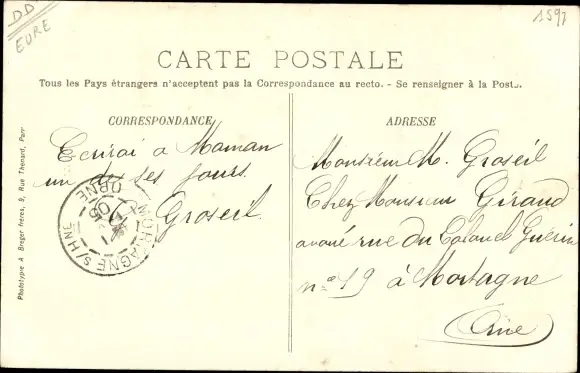 DD
EURE
1597
CARTE POSTALE
Tous les Pays étrangers n'acceptent pas la Correspondance au recto. - Se renseigner à la Poste.
CORRESPONDANCE
Ecrirai a Maman
un de ses jours.
Groseil
ADRESSE
Monsieur M. Groseil
Chez Monsieur Giraud
avoué rue du Colonel Guérin
n° 19 à Mortagne
Orne
MORTAGNE S/HNE
ORNE
05
Phototypie A Breger frères, 9, Rue Thénard, Paris